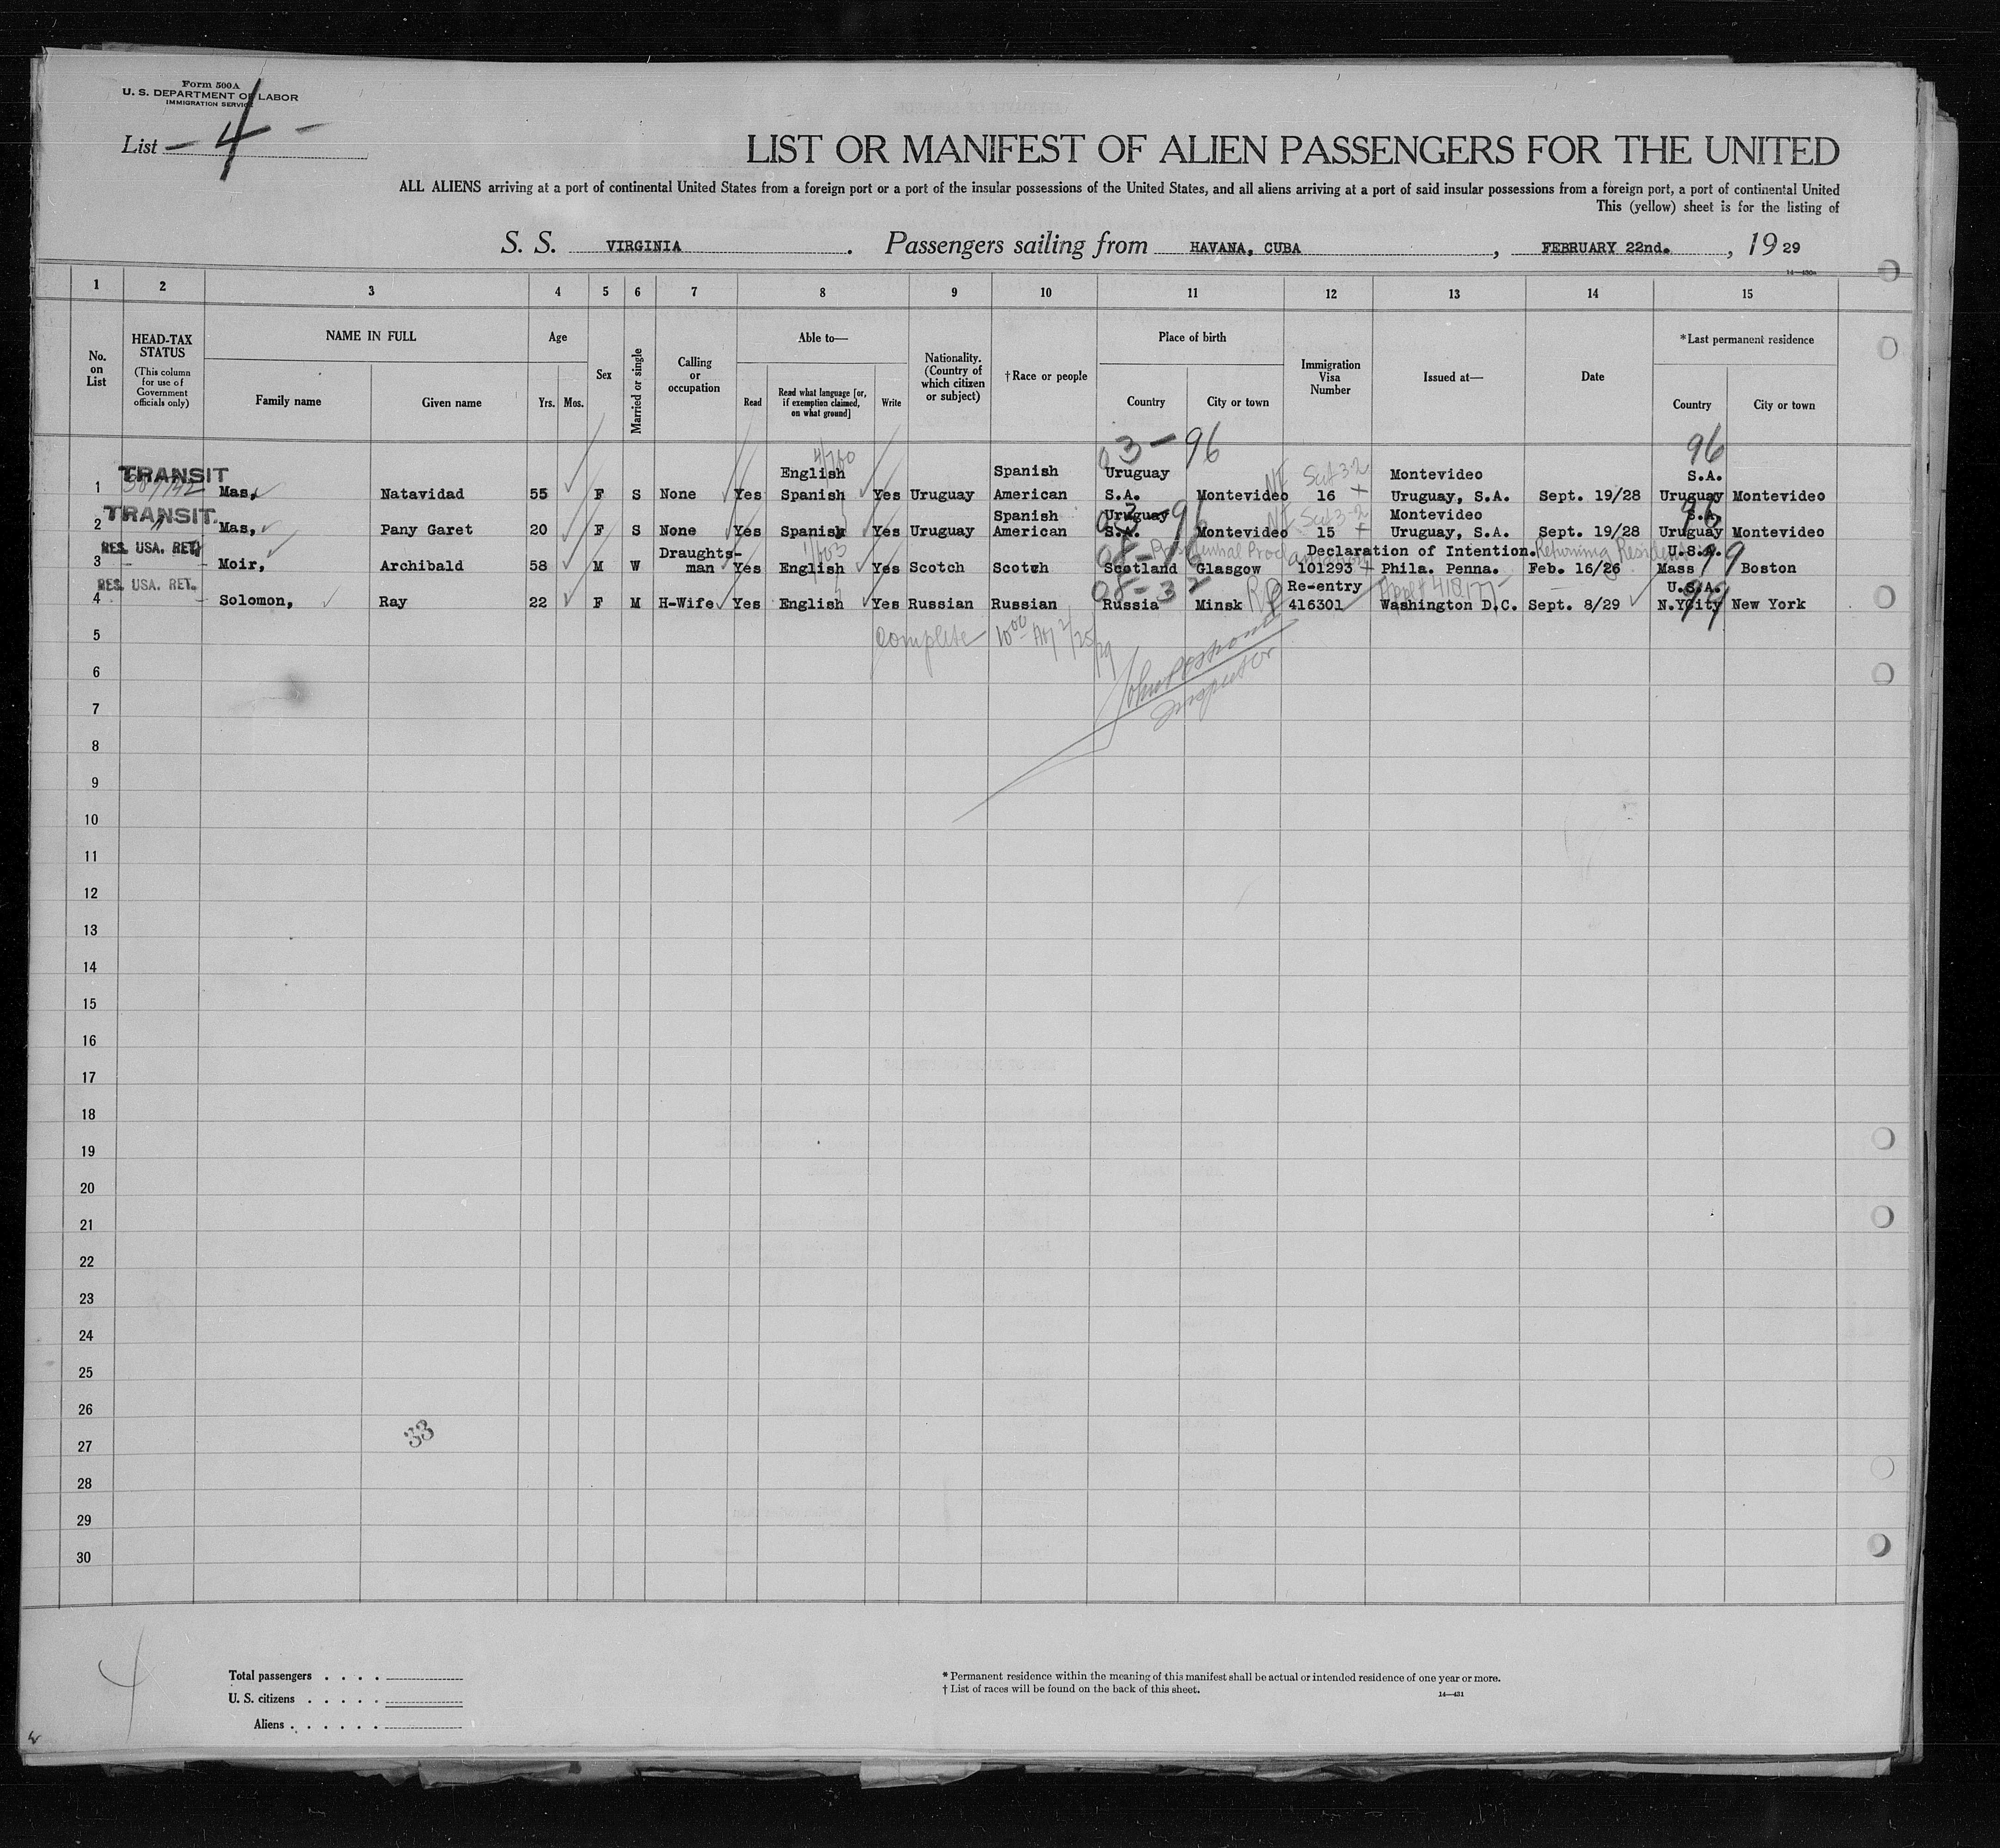 Form 500A
U. S. DEPARTMENT OF LABOR
IMMIGRATION SERVICE
List - 4 -
LIST OR MANIFEST OF ALIEN PASSENGERS FOR THE UNITED
ALL ALIENS arriving at a port of continental United States from a foreign port or a port of the insular possessions of the United States, and all aliens arriving at a port of said insular possessions from a foreign port, a port of continental United
This (yellow) sheet is for the listing of
S. S. VIRGINIA. Passengers sailing from HAVANA, CUBA, FEBRUARY 22nd., 19 29
1 2 3 4 5 6 7 8 9 10 11 12 13 14 15
No. on List
HEAD-TAX STATUS
(This column for use of Government officials only)
NAME IN FULL
Family name Given name
Age
Yrs. Mos.
Sex
Married or single
Calling or occupation
Able to—
Read Read what language [or, if exemption claimed, on what ground] Write
Nationality. (Country of which citizen or subject)
†Race or people
Place of birth
Country City or town
Immigration Visa Number
Issued at—
Date
*Last permanent residence
Country City or town
03-96 96
TRANSIT 4/760 English Spanish Uruguay Montevideo S.A.
1 Mas, Natavidad 55 F S None Yes Spanish Yes Uruguay American S.A. Montevideo 16 Uruguay, S.A. Sept. 19/28 Uruguay Montevideo
TRANSIT. Spanish Uruguay Montevideo S.A.
2 " Mas, Pany Garet 20 F S None Yes Spanish Yes Uruguay American S.A. Montevideo 15 Uruguay, S.A. Sept. 19/28 Uruguay Montevideo
RES. USA. RET. Draughts- Declaration of Intention. Returning Resident U.S.A.
3 Moir, Archibald 58 M W man Yes English Yes Scotch Scotch Scotland Glasgow 101293 Phila. Penna. Feb. 16/26 Mass 99 Boston
RES. USA. RET. 08-32 Re-entry U.S.A.
4 Solomon, Ray 22 F M H-Wife Yes English Yes Russian Russian Russia Minsk 416301 Washington D.C. Sept. 8/29 N.YCity New York
5 Complete 10 00 2/25/29
6
Inspector
7
8
9
10
11
12
13
14
15
16
17
18
19
20
21
22
23
24
25
26
33
27
28
29
30
4
Total passengers . . . .
U. S. citizens . . . . .
Aliens . . . . . .
* Permanent residence within the meaning of this manifest shall be actual or intended residence of one year or more.
† List of races will be found on the back of this sheet.
14—431